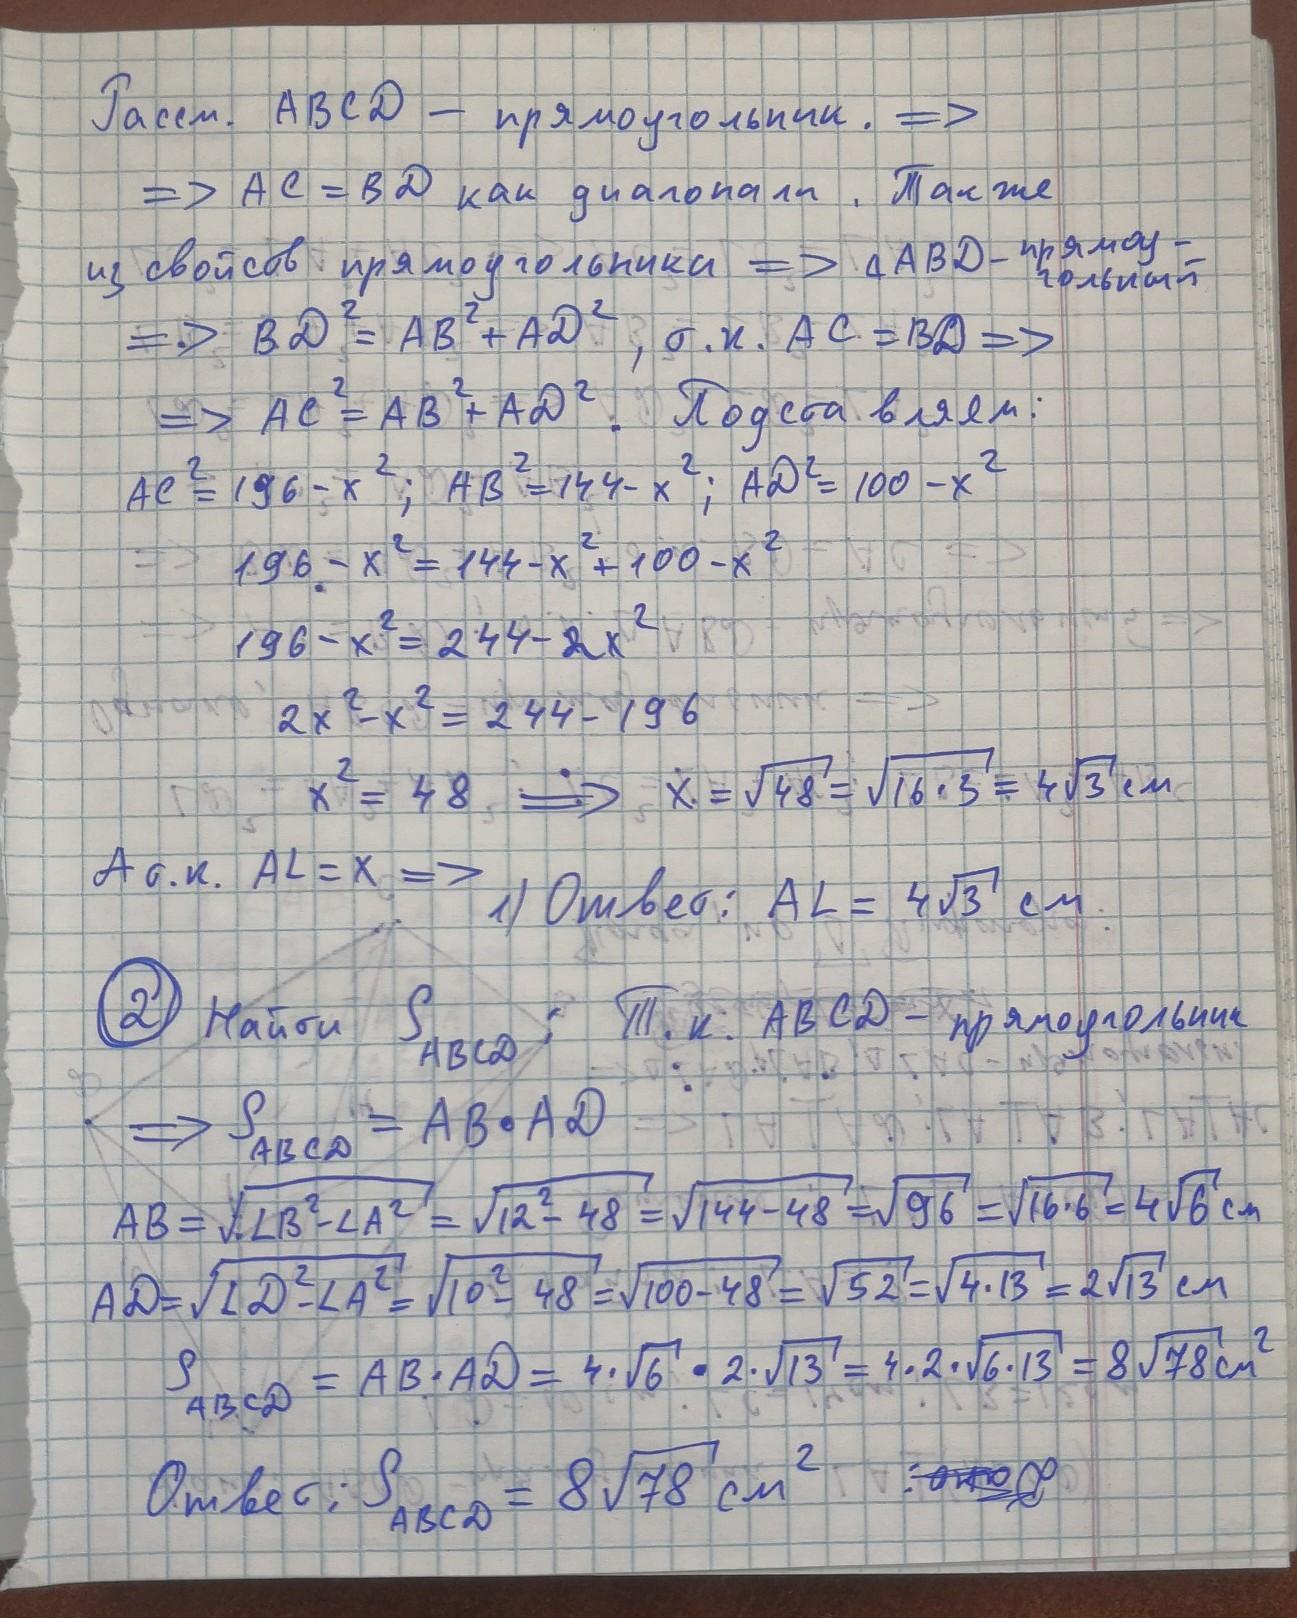 Рассм. ABCD — прямоугольник. =>
=> AC = BD как диагонали. Также
из свойсв прямоугольника => △ABD - прямоу-
гольный
=> BD² = AB² + AD², т.к. AC = BD =>
=> AC² = AB² + AD². Подставляем:
AC² = 196 - x²; AB² = 144 - x²; AD² = 100 - x²
196 - x² = 144 - x² + 100 - x²
196 - x² = 244 - 2x²
2x² - x² = 244 - 196
x² = 48 => x = √48 = √16·3 = 4√3 см
А т.к. AL = x =>
1) Ответ: AL = 4√3 см
② Найти S_ABCD; Т.к. ABCD - прямоугольник
=> S_ABCD = AB · AD
AB = √LB² - LA² = √12² - 48 = √144 - 48 = √96 = √16·6 = 4√6 см
AD = √LD² - LA² = √10² - 48 = √100 - 48 = √52 = √4·13 = 2√13 см
S_ABCD = AB · AD = 4·√6 · 2·√13 = 4·2·√6·13 = 8√78 см²
Ответ: S_ABCD = 8√78 см²